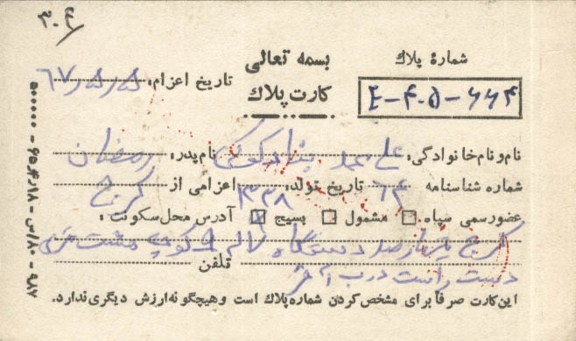 ۳۰۴
بسمه تعالی
کارت پلاک
شمارهٔ پلاک
E-۴۰۵-۶۶۴
تاریخ اعزام: ۶۷/۸/۵
نام و نام خانوادگی: علی بنادکوکی نام پدر: رمضان
شماره شناسنامه ۶۴ تاریخ تولد: ۱۳۳۸ اعزامی از کرج
عضو رسمی سپاه □ مشمول □ بسیج ☒ آدرس محل سکونت:
کرج چهارصد دستگاه
تلفن
دست راست درب آخر
این کارت صرفاً برای مشخص کردن شماره پلاک است و هیچگونه ارزش دیگری ندارد.